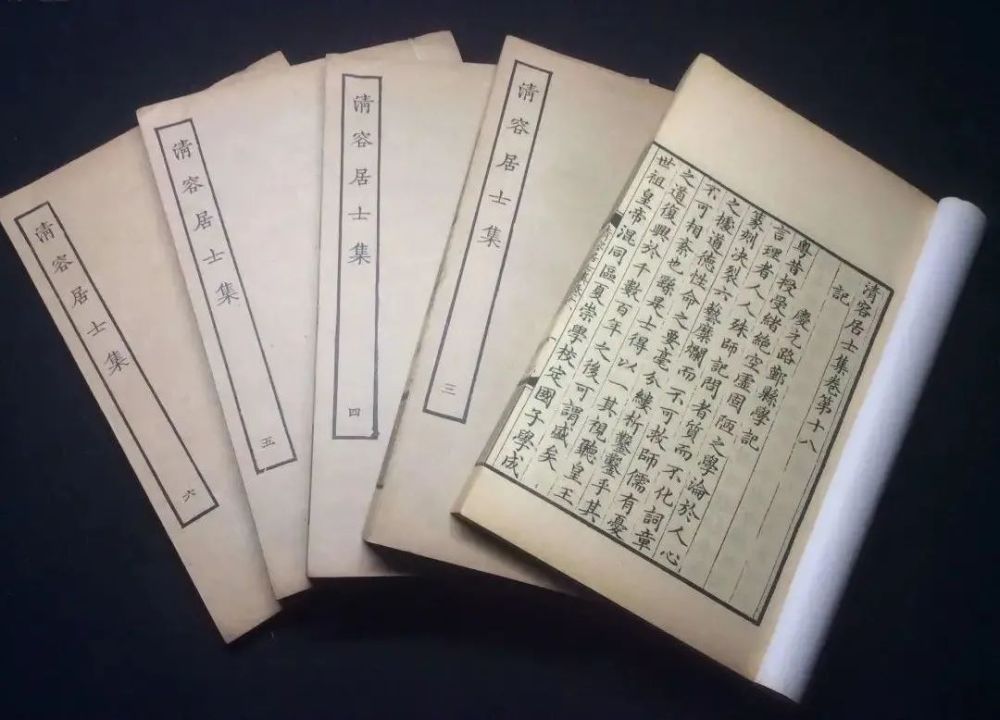 清容居士集
六
清容居士集
五
清容居士集
四
清容居士集
三
清容居士集卷第十八
記
慶元路鄞縣學記
粵昔授受緒絕空虛固陋之學淪於人心
言理者人人殊師記問者質而不化詞章
篆刻决裂六藝糜爛而不可救師儒有憂
之攄道德性命之要毫分縷析鑿鑿乎其
不可相紊也繇是士得以一其視聽皇王
之道復興於千數百年之後可謂盛矣
世祖皇帝混同區夏崇學校定國子學成